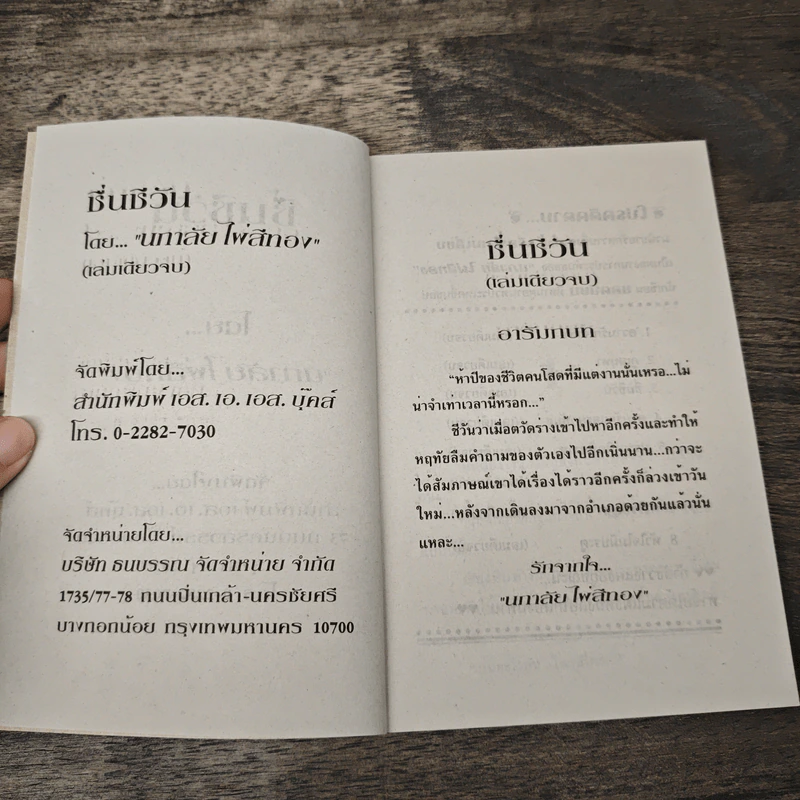 ชื่นชีวัน
โดย... "นภาลัย ไผ่สีทอง"
(เล่มเดียวจบ)
จัดพิมพ์โดย...
สำนักพิมพ์ เอส. เอ. เอส. บุ๊คส์
โทร. 0-2282-7030
จัดจำหน่ายโดย...
บริษัท ธนบรรณ จัดจำหน่าย จำกัด
1735/77-78 ถนนปิ่นเกล้า-นครชัยศรี
บางกอกน้อย กรุงเทพมหานคร 10700
ชื่นชีวัน
(เล่มเดียวจบ)
อารัมภบท
"ห้าปีของชีวิตคนโสดที่มีแต่งานนั่นเหรอ...ไม่
น่าจำเท่าเวลานี้หรอก..."
ชีวันว่าเมื่อตวัดร่างเข้าไปหาอีกครั้งและทำให้
หฤทัยลืมคำถามของตัวเองไปอีกเนิ่นนาน...กว่าจะ
ได้สัมภาษณ์เขาได้เรื่องได้ราวอีกครั้งก็ล่วงเข้าวัน
ใหม่...หลังจากเดินลงมาจากอำเภอด้วยกันแล้วนั่น
แหละ...
รักจากใจ...
"นภาลัย ไผ่สีทอง"